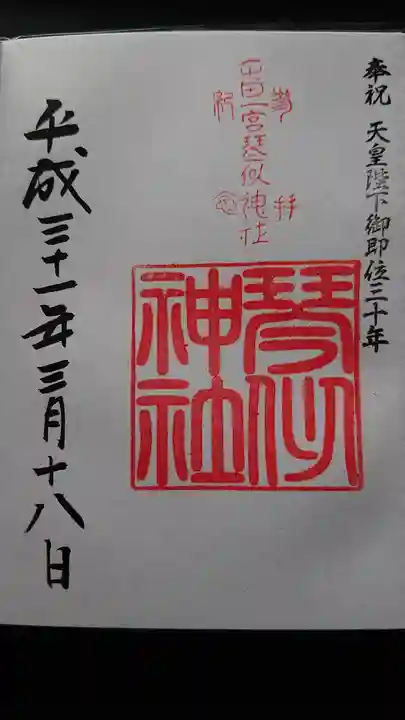 奉祝 天皇陛下御即位三十年
参拝
屯田一宮琴似神社
琴似
神社
平成三十一年三月十八日